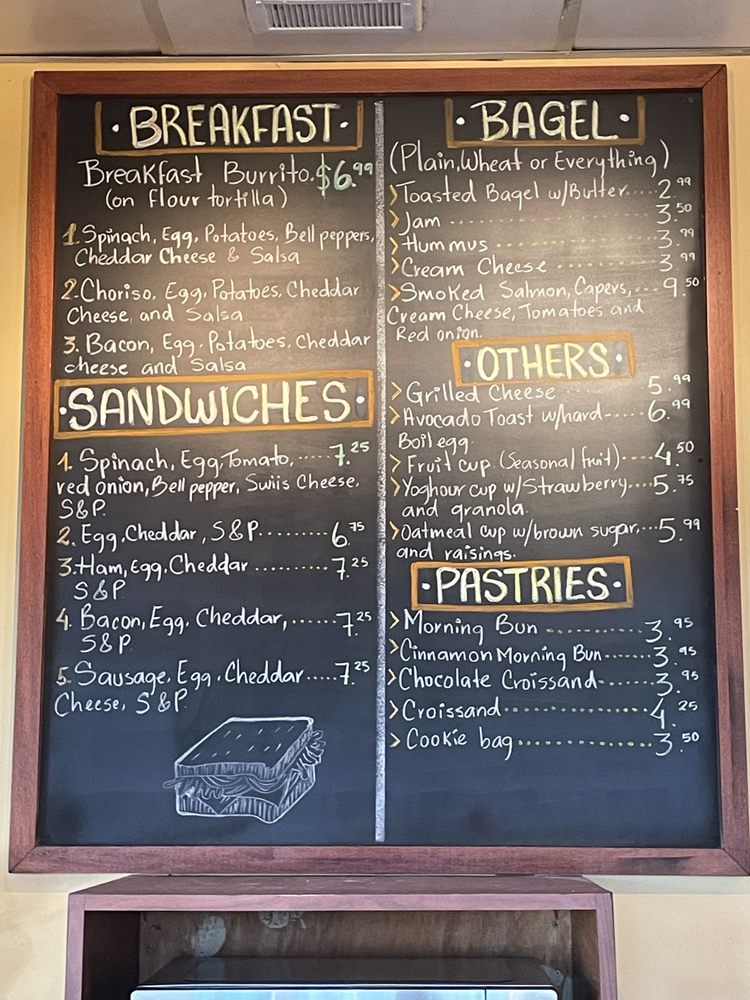 ·BREAKFAST·
Breakfast Burrito.$6.99
(on flour tortilla)
1. Spinach, Egg, Potatoes, Bell peppers,
Cheddar Cheese & Salsa
2. Choriso, Egg, Potatoes, Cheddar
Cheese, and Salsa
3. Bacon, Egg, Potatoes, Cheddar
cheese and Salsa
·SANDWICHES·
1. Spinach, Egg, Tomato, ..... 7.25
red onion, Bell pepper, Swiis Cheese,
S&P.
2. Egg, Cheddar, S&P.......... 6.75
3. Ham, Egg, Cheddar .......... 7.25
S&P
4. Bacon, Egg, Cheddar, ...... 7.25
S&P.
5. Sausage, Egg, Cheddar ..... 7.25
Cheese, S&P.
·BAGEL·
(Plain, Wheat or Everything)
>Toasted Bagel w/Butter.... 2.99
>Jam .................... 3.50
>Hummus ................ 3.99
>Cream Cheese .......... 3.99
>Smoked Salmon, Capers, ... 9.50
Cream Cheese, Tomatoes and
Red onion.
·OTHERS·
>Grilled Cheese 5.99
>Avocado Toast w/hard----- 6.99
Boil egg
>Fruit cup. (Seasonal fruit)---- 4.50
>Yoghour cup w/Strawberry,... 5.75
and granola.
>Oatmeal cup w/brown sugar,... 5.99
and raisings.
·PASTRIES·
>Morning Bun ............ 3.95
>Cinnamon Morning Bun------ 3.95
>Chocolate Croissand------ 3.95
>Croissand................ 4.25
>Cookie bag.............. 3.50